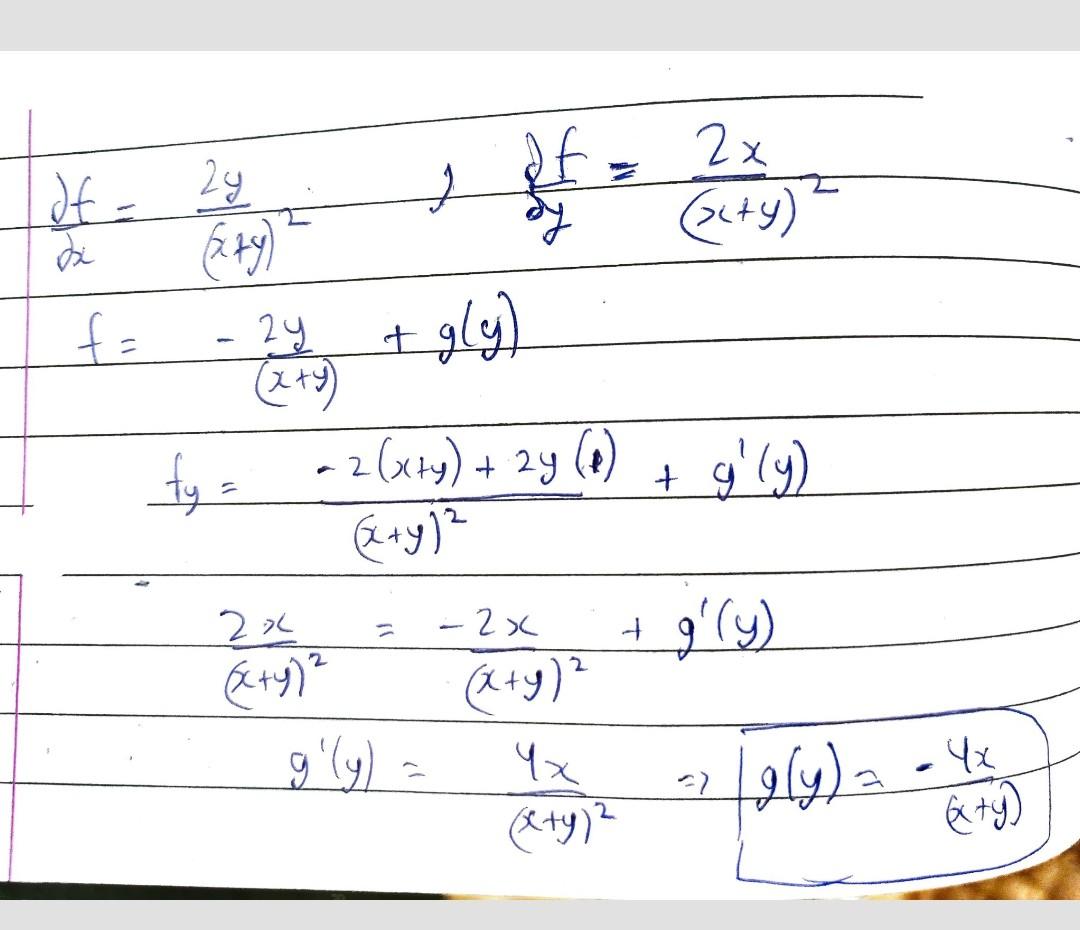 ∂f/∂x = 2y/(x+y)² , ∂f/∂y = 2x/(x+y)²
f = - 2y/(x+y) + g(y)
fy = -2(x+y) + 2y(1)/(x+y)² + g'(y)
2x/(x+y)² = -2x/(x+y)² + g'(y)
g'(y) = 4x/(x+y)² => g(y) = -4x/(x+y)